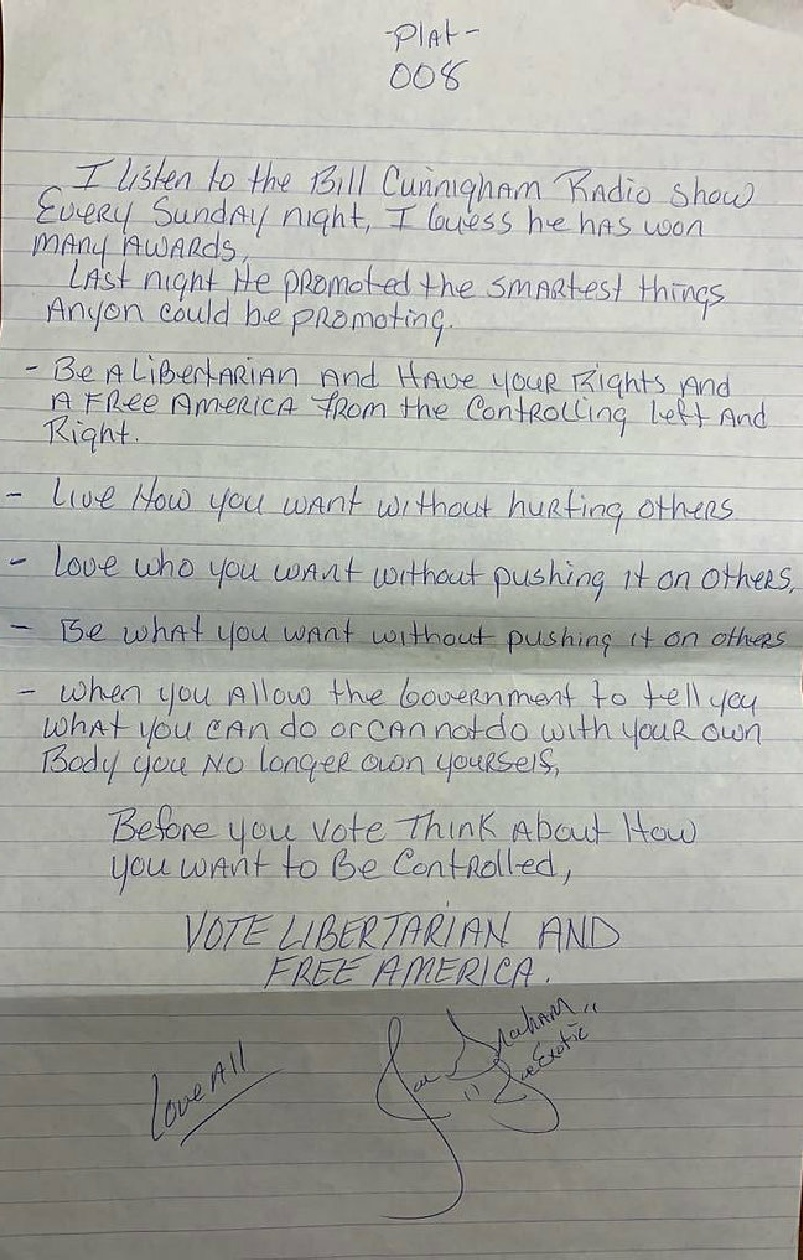 -Plat-
008
I listen to the Bill Cunnigham Radio show
Every Sunday night, I Guess he has won
many Awards,
Last night He promoted the smartest things
Anyon could be promoting.
- Be A Libertarian and Have your Rights and
A Free America From the Controlling Left And
Right.
- Live How you want without hurting others
- Love who you want without pushing it on others,
- Be what you want without pushing it on others
- when you Allow the Government to tell you
what you can do or can not do with your own
Body you No longer own yourself,
Before you vote Think About How
you want to Be Controlled,
VOTE LIBERTARIAN AND
FREE AMERICA.
Love All
Joe
"Joe Exotic"